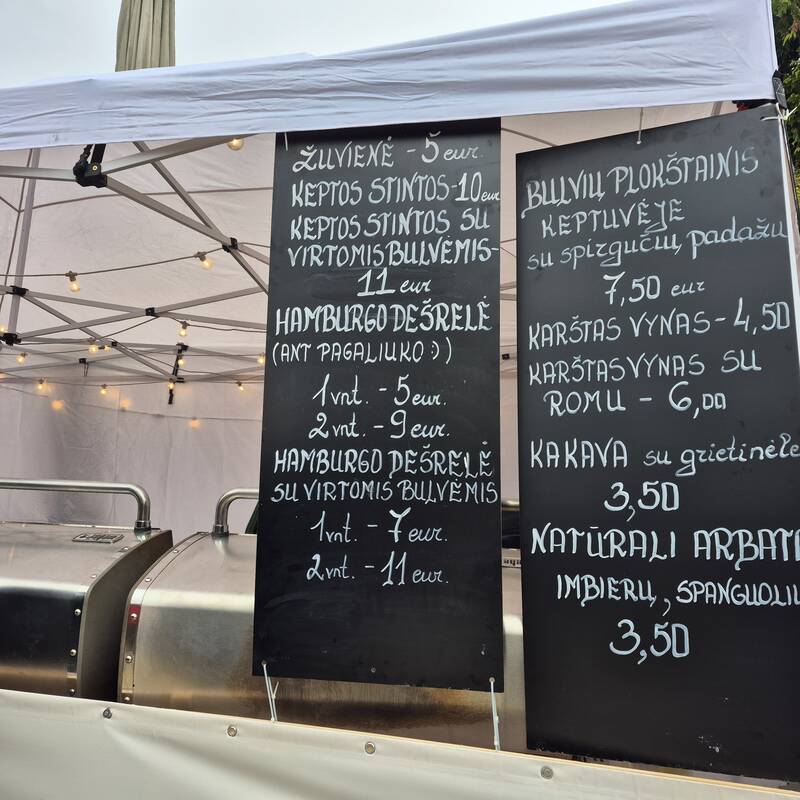 ŽUVIENĖ - 5 eur.
KEPTOS STINTOS-10 eur
KEPTOS STINTOS SU
VIRTOMIS BULVĖMIS-
11 eur
HAMBURGO DEŠRELĖ
(ANT PAGALIUKO :))
1 vnt. - 5 eur.
2 vnt. - 9 eur.
HAMBURGO DEŠRELĖ
SU VIRTOMIS BULVĖMIS
1 vnt. - 7 eur.
2 vnt. - 11 eur.
BULVIŲ PLOKŠTAINIS
KEPTUVĖJE
su spirgučių padažu
7,50 eur
KARŠTAS VYNAS - 4,50
KARŠTAS VYNAS SU
ROMU - 6,00
KAKAVA su grietinėle
3,50
NATŪRALI ARBATA
IMBIERŲ, SPANGUOLIŲ
3,50